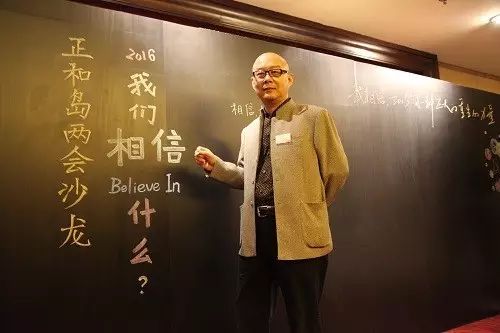 正和岛两会沙龙
2016
我们
相信
Believe In
什么？
相信
我相信，2016